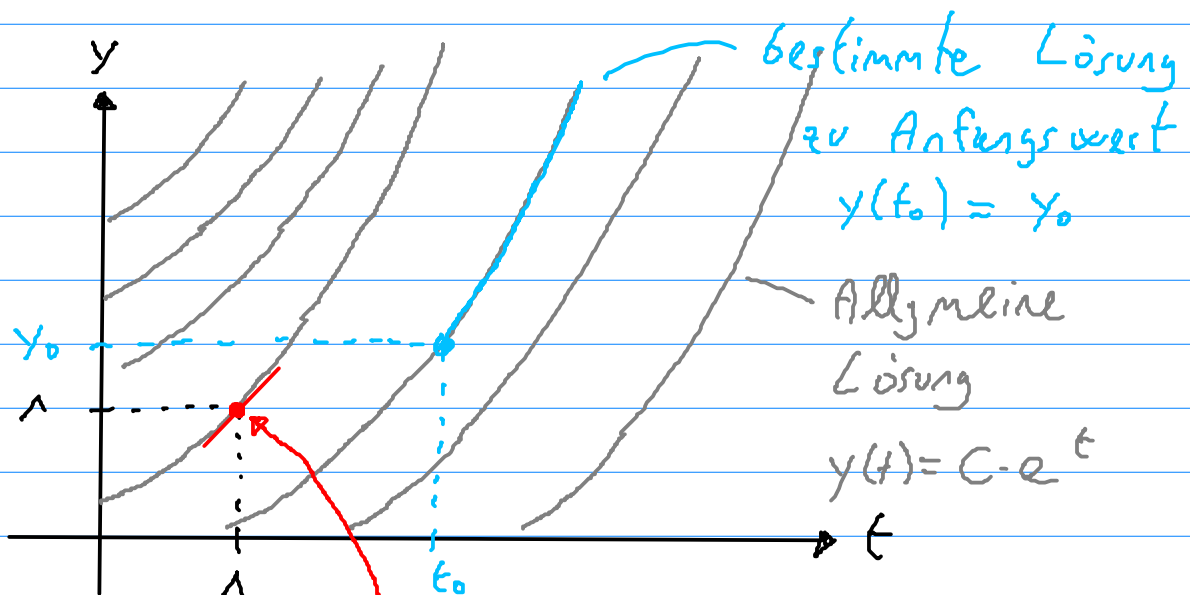 y
bestimmte Lösung
zu Anfangswert
y(t₀) = y₀
Allgmeine
Lösung
y(t) = C·e^t
y₀
1
1
t₀
t